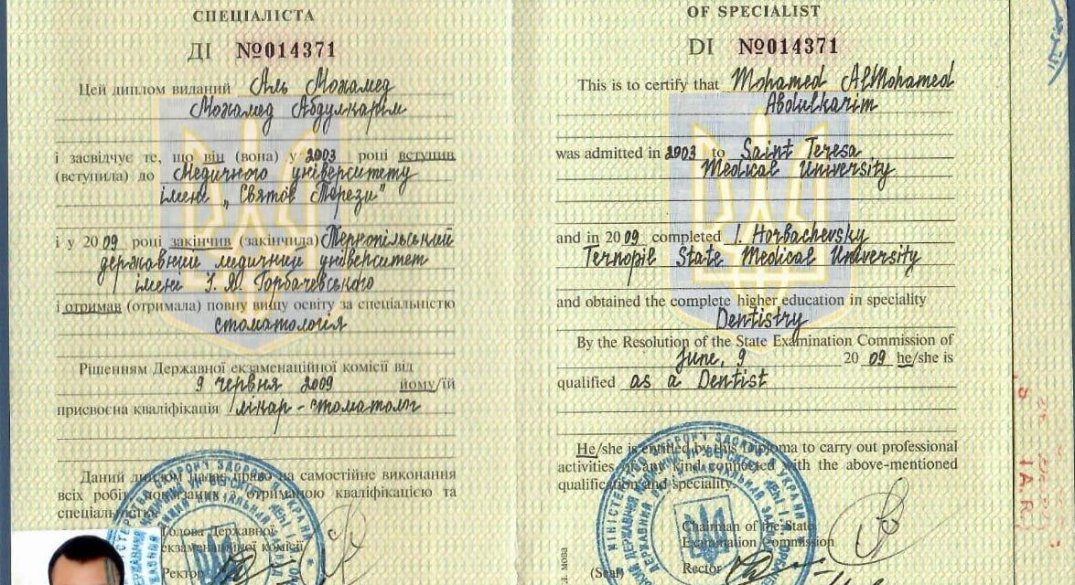 СПЕЦІАЛІСТА
ДІ №014371
Цей диплом виданий Аль Мохамед
Мохамед Абдулкарім
і засвідчує те, що він (вона) у 2003 році вступив
(вступила) до Медичного університету
імені „Святої Терези"
і у 2009 році закінчив (закінчила) Тернопільський
державний медичний університет
імені І. Я. Горбачевського
і отримав (отримала) повну вищу освіту за спеціальністю
стоматологія
Рішенням Державної екзаменаційної комісії від
9 червня 2009 йому/їй
присвоєна кваліфікація лікар-стоматолог
Даний диплом дає право на самостійне виконання
всіх робіт, пов'язаних з отриманою кваліфікацією та
спеціальністю
Голова Державної
екзаменаційної комісії
Ректор
OF SPECIALIST
DI №014371
This is to certify that Mohamed AlMohamed
Abdulkarim
was admitted in 2003 to Saint Teresa
Medical University
and in 2009 completed I. Horbachevsky
Ternopil State Medical University
and obtained the complete higher education in speciality
Dentistry
By the Resolution of the State Examination Commission of
June, 9 2009 he/she is
qualified as a Dentist
He/she is entitled by this Diploma to carry out professional
activities of any kind connected with the above-mentioned
qualification and speciality.
Chairman of the State
Examination Commission
(Seal) Rector